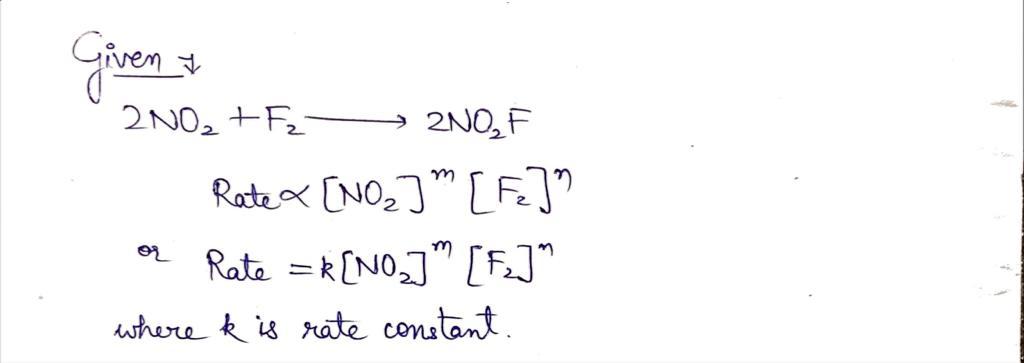 Given ↓
2NO₂ + F₂ ⟶ 2NO₂F
Rate ∝ [NO₂]ᵐ [F₂]ⁿ
or Rate = k[NO₂]ᵐ [F₂]ⁿ
where k is rate constant.